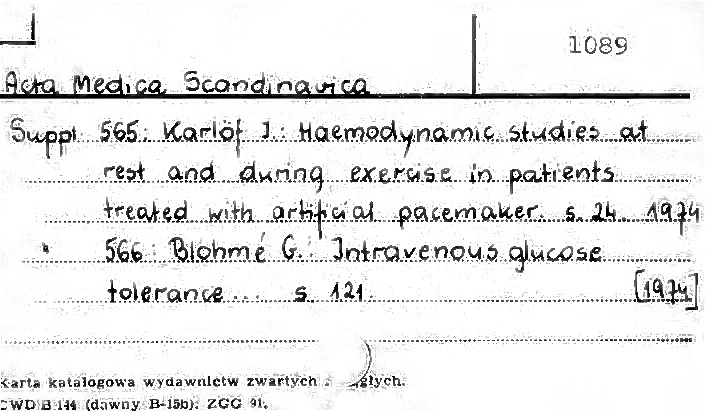 1089
Acta Medica Scandinavica
Suppl 565: Karlöf I.: Haemodynamic studies at
rest and during exercise in patients
treated with artificial pacemaker. s. 24. 1974
" 566: Blohmé G.: Intravenous glucose
tolerance... s. 121. [1974]
Karta katalogowa wydawnictw zwartych
CWD B-144 (dawny B-15b); ZGG 91.